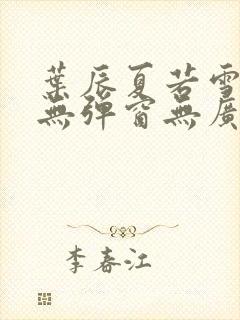 葉辰夏若雪
無彈窗無廣
李春江